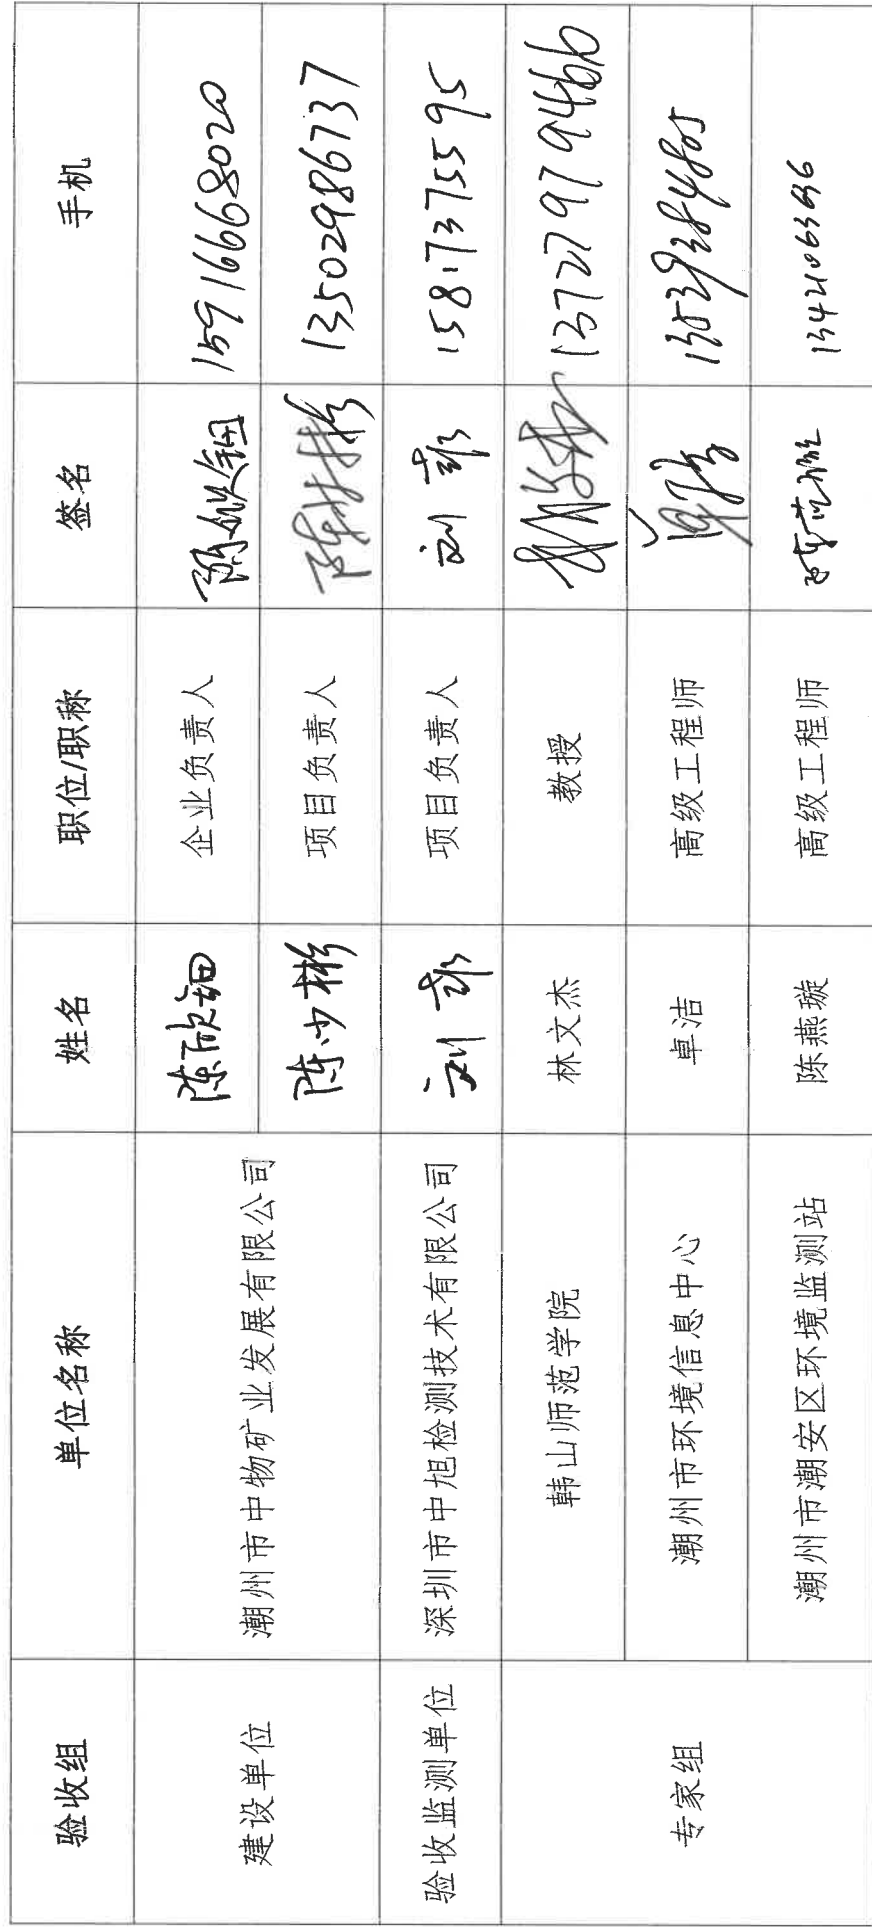 验收组 单位名称 姓名 职位/职称 签名 手机
建设单位 潮州市中物矿业发展有限公司 陈欣钿 企业负责人 陈欣钿 15916668020
陈少彬 项目负责人 陈少彬 13502986737
验收监测单位 深圳市中旭检测技术有限公司 刘 项目负责人 刘 15817375595
专家组 韩山师范学院 林文杰 教授 13727979466
潮州市环境信息中心 卓洁 高级工程师 卓洁
潮州市潮安区环境监测站 陈燕璇 高级工程师 陈燕璇 13421063696